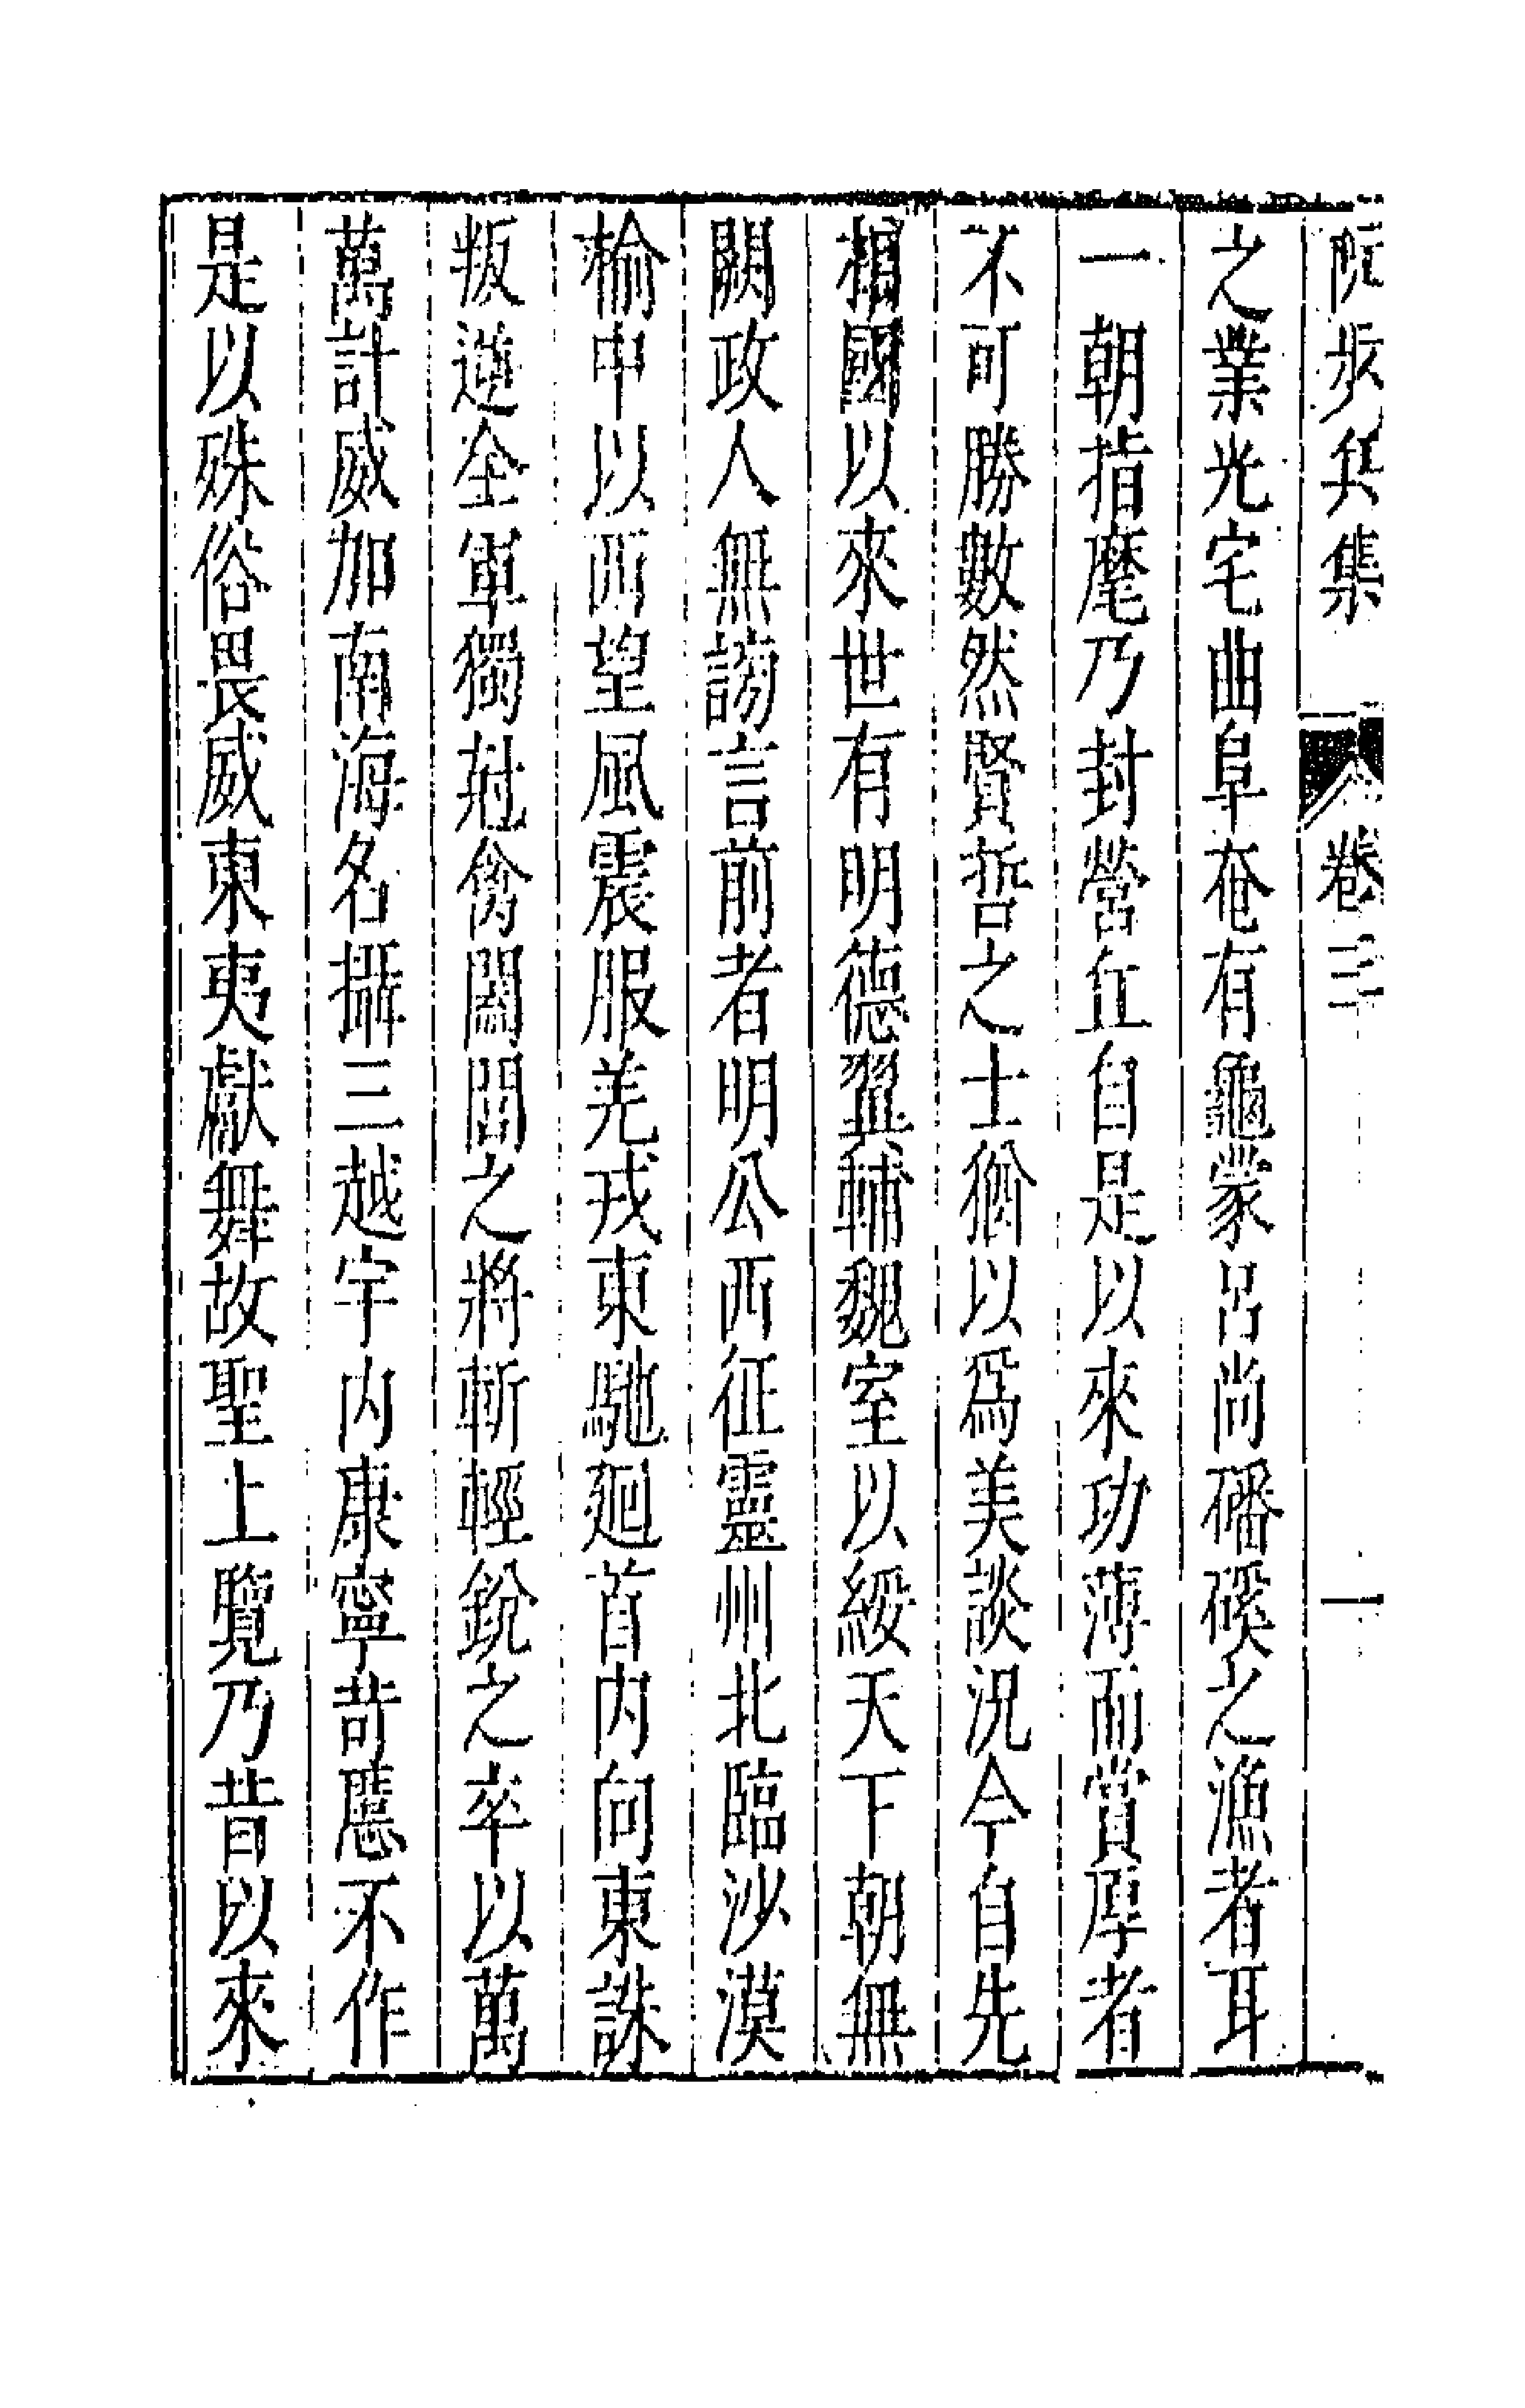 阮步兵集 卷三 一
之業光宅曲阜奄有龜蒙呂尚磻磎之漁者耳
一朝指麾乃封營丘自是以來功薄而賞厚者
不可勝數然賢哲之士猶以爲美談況今自先
相國以來世有明德翼輔魏室以綏天下朝無
闕政人無謗言前者明公西征靈州北臨沙漠
榆中以西望風震服羌戎東馳廻首内向東誅
叛逆全軍獨尅禽闔閭之將斬輕銳之卒以萬
萬計威加南海名攝三越宇内康寧苛慝不作
是以殊俗畏威東夷獻舞故聖上覽乃昔以來